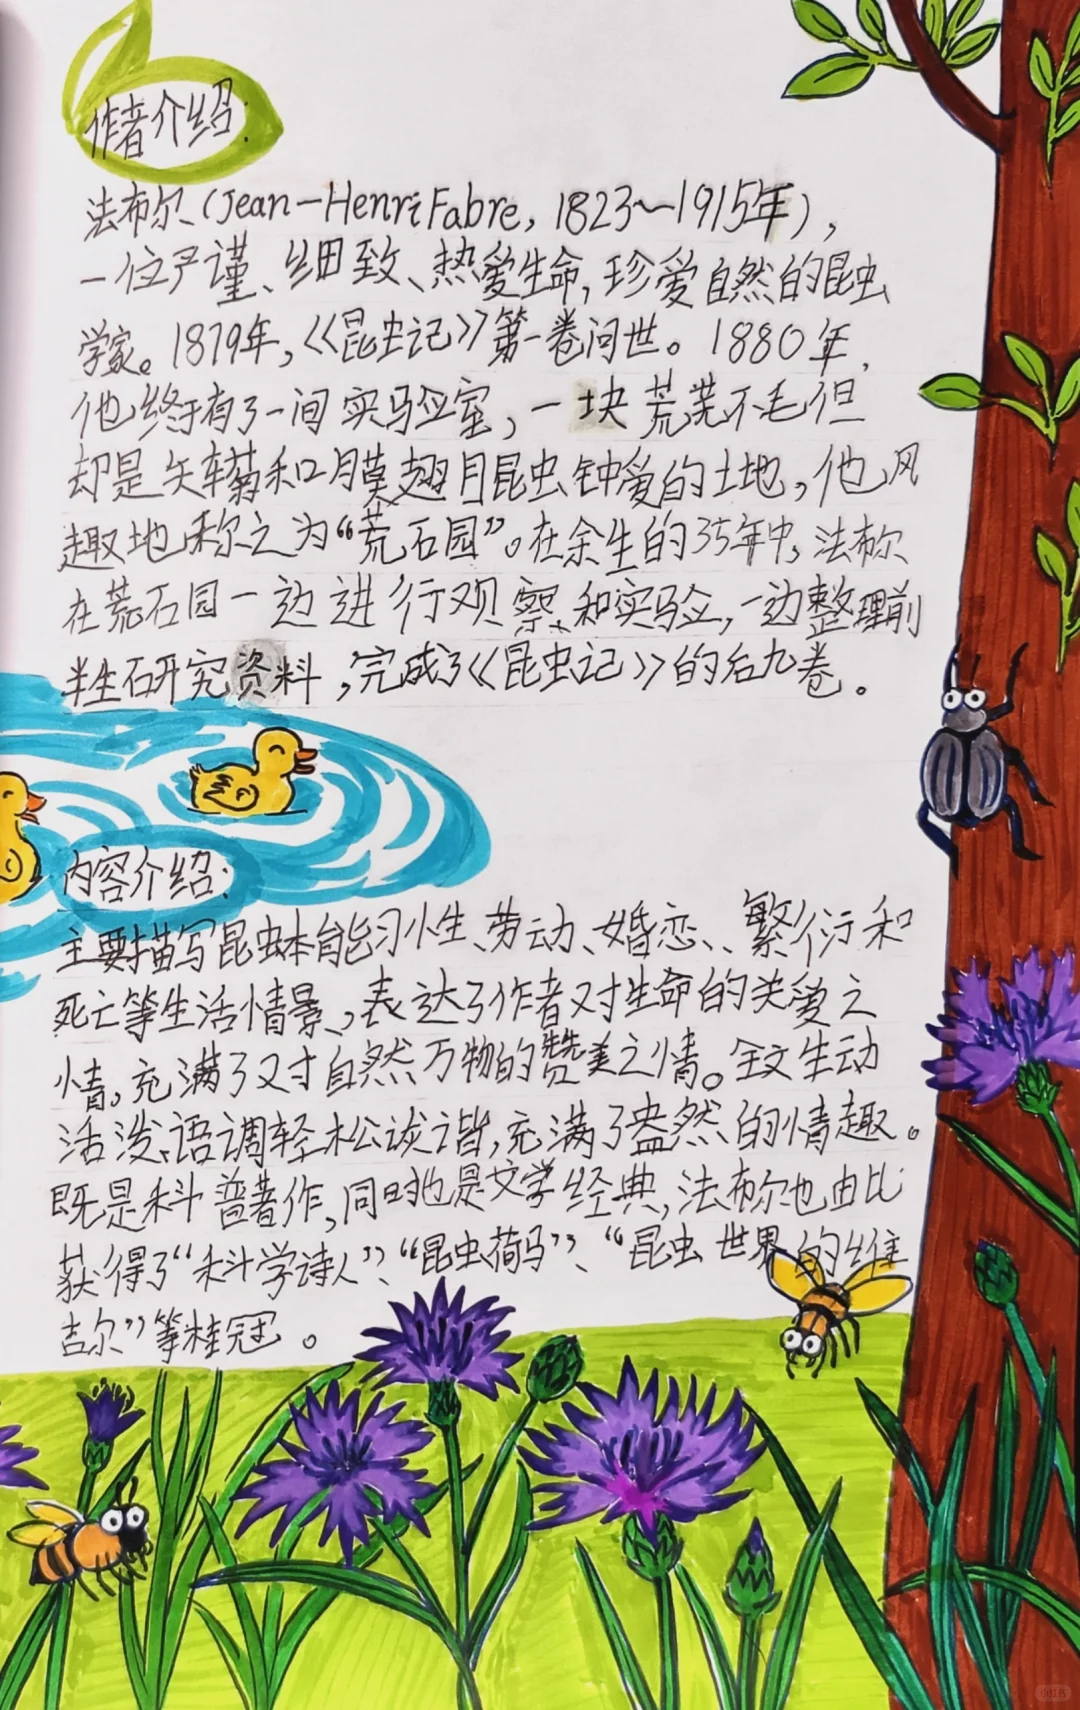 作者介绍:
法布尔(Jean-Henri Fabre, 1823~1915年),
一位严谨、细致、热爱生命,珍爱自然的昆虫
学家。1879年,《昆虫记》第一卷问世。1880年,
他终于有了一间实验室,一块荒芜不毛但
却是矢车菊和膜翅目昆虫钟爱的土地,他风
趣地称之为“荒石园”。在余生的35年中,法布尔
在荒石园一边进行观察和实验,一边整理前
半生研究资料,完成了《昆虫记》的后九卷。
内容介绍:
主要描写昆虫本能习性、劳动、婚恋、繁衍和
死亡等生活情景、,表达了作者对生命的关爱之
情。充满了对自然万物的赞美之情。全文生动
活泼,语调轻松诙谐,充满了盎然的情趣。
既是科普著作,同时也是文学经典,法布尔也由此
获得了“科学诗人”、“昆虫荷马”、“昆虫世界的维
吉尔”等桂冠。